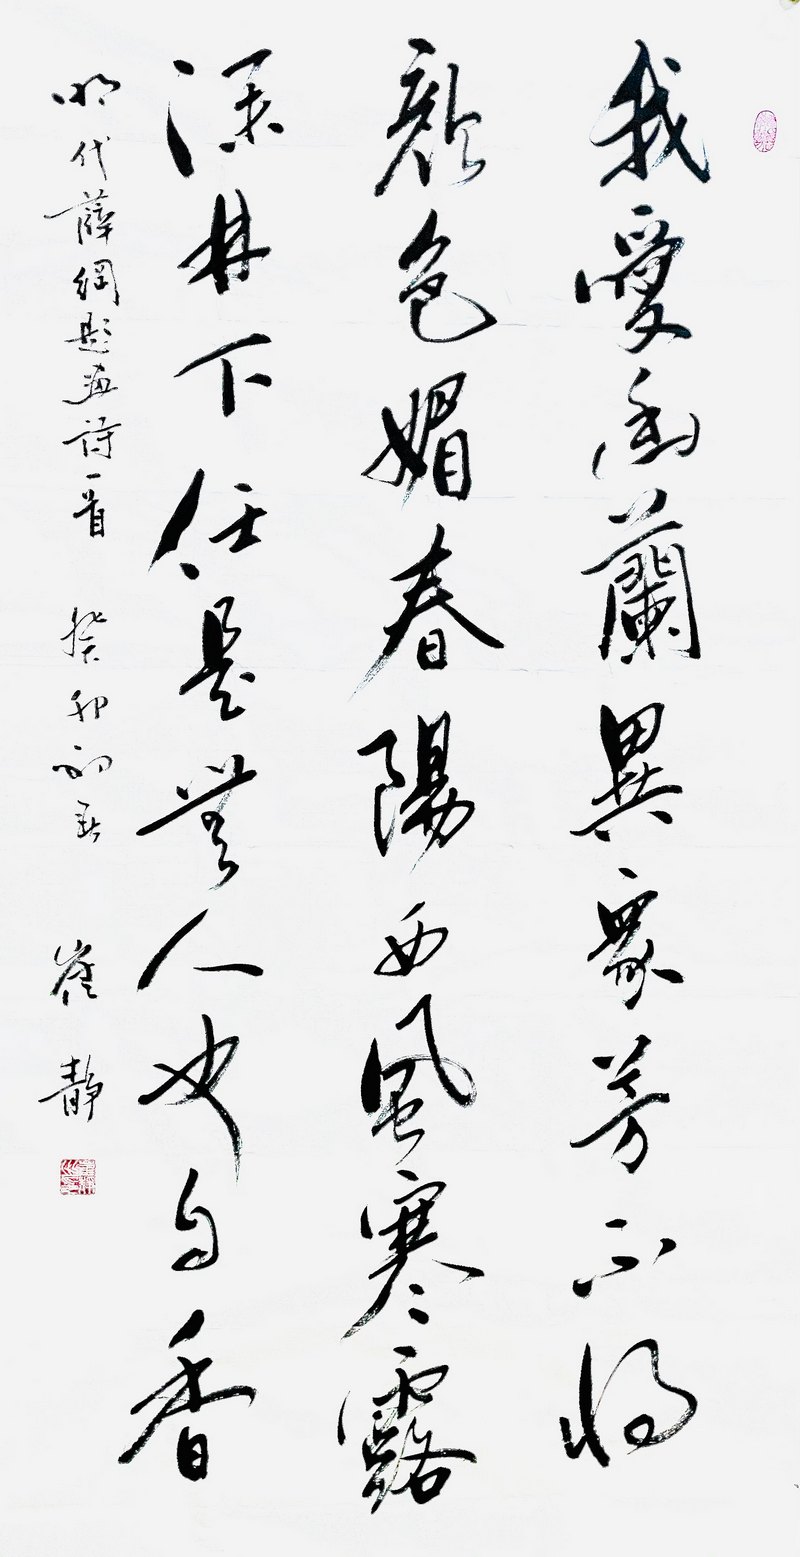 我愛幽蘭異眾芳不將
顏色媚春陽西風寒露
深林下任是無人也自香
明代薛綱題畫詩一首 癸卯初春 崔靜